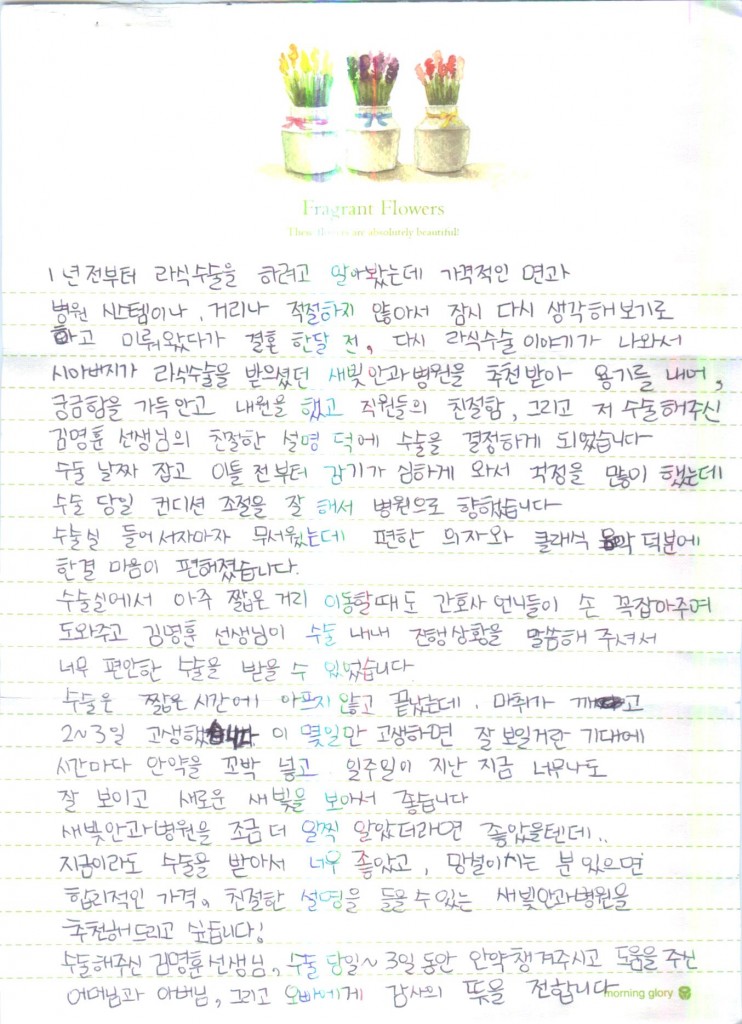 Fragrant Flowers
These flowers are absolutely beautiful!
1년전부터 라식수술을 하려고 알아봤는데 가격적인 면과
병원 시스템이나, 거리나 적절하지 않아서 잠시 다시 생각해보기로
하고 미뤄왔다가 결혼 한달 전, 다시 라식수술 이야기가 나와서
시아버지가 라식수술을 받으셨던 새빛안과병원을 추천받아 용기를 내어,
궁금함을 가득안고 내원을 했고 직원들의 친절함, 그리고 저 수술해주신
김명훈 선생님의 친절한 설명 덕에 수술을 결정하게 되었습니다
수술 날짜 잡고 이틀 전부터 감기가 심하게 와서 걱정을 많이 했는데
수술 당일 컨디션 조절을 잘 해서 병원으로 향했습니다
수술실 들어서자마자 무서웠는데 편한 의자와 클래식 음악 덕분에
한결 마음이 편해졌습니다.
수술실에서 아주 짧은 거리 이동할때도 간호사 언니들이 손 꼭잡아주며
도와주고 김명훈 선생님이 수술 내내 진행상황을 말씀해 주셔서
너무 편안한 수술을 받을 수 있었습니다
수술은 짧은 시간에 아프지 않고 끝났는데, 마취가 깨고
2~3일 고생했습니다 이 몇일만 고생하면 잘 보일거란 기대에
시간마다 안약을 꼬박 넣고 일주일이 지난 지금 너무나도
잘 보이고 새로운 새빛을 보아서 좋습니다
새빛안과병원을 조금 더 일찍 알았더라면 좋았을텐데..
지금이라도 수술을 받아서 너무 좋았고, 망설이시는 분 있으면
합리적인 가격, 친절한 설명을 들을 수 있는 새빛안과병원을
추천해드리고 싶습니다!
수술해주신 김명훈선생님, 수술 당일~3일 동안 안약챙겨주시고 도움을 주신
어머님과 아버님, 그리고 오빠에게 감사의 뜻을 전합니다
morning glory